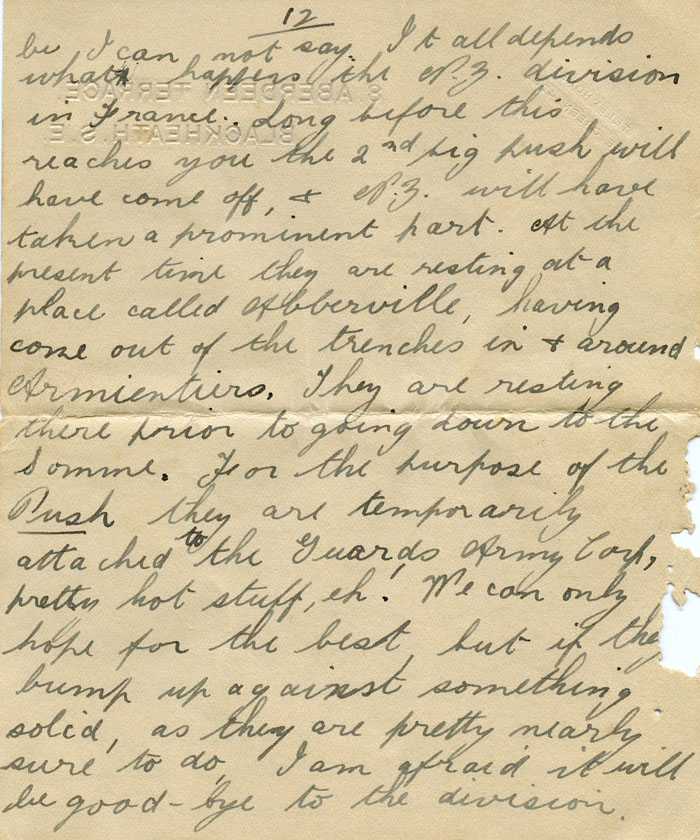 12
be I can not say. It all depends
what happens the N.Z. division
in France. Long before this
reaches you the 2nd big push will
have come off, & N.Z. will have
taken a prominent part. At the
present time they are resting at a
place called Abberville, having
come out of the trenches in & around
Armientiers. They are resting
there prior to going down to the
Somme. For the purpose of the
Push they are temporarily
attached to the Guards Army Corp,
pretty hot stuff, eh! We can only
hope for the best, but if they
bump up against something
solid, as they are pretty nearly
sure to do, I am afraid it will
be good-bye to the division.
8. ABERDEEN TERRACE
BLACKHEATH. S.E.